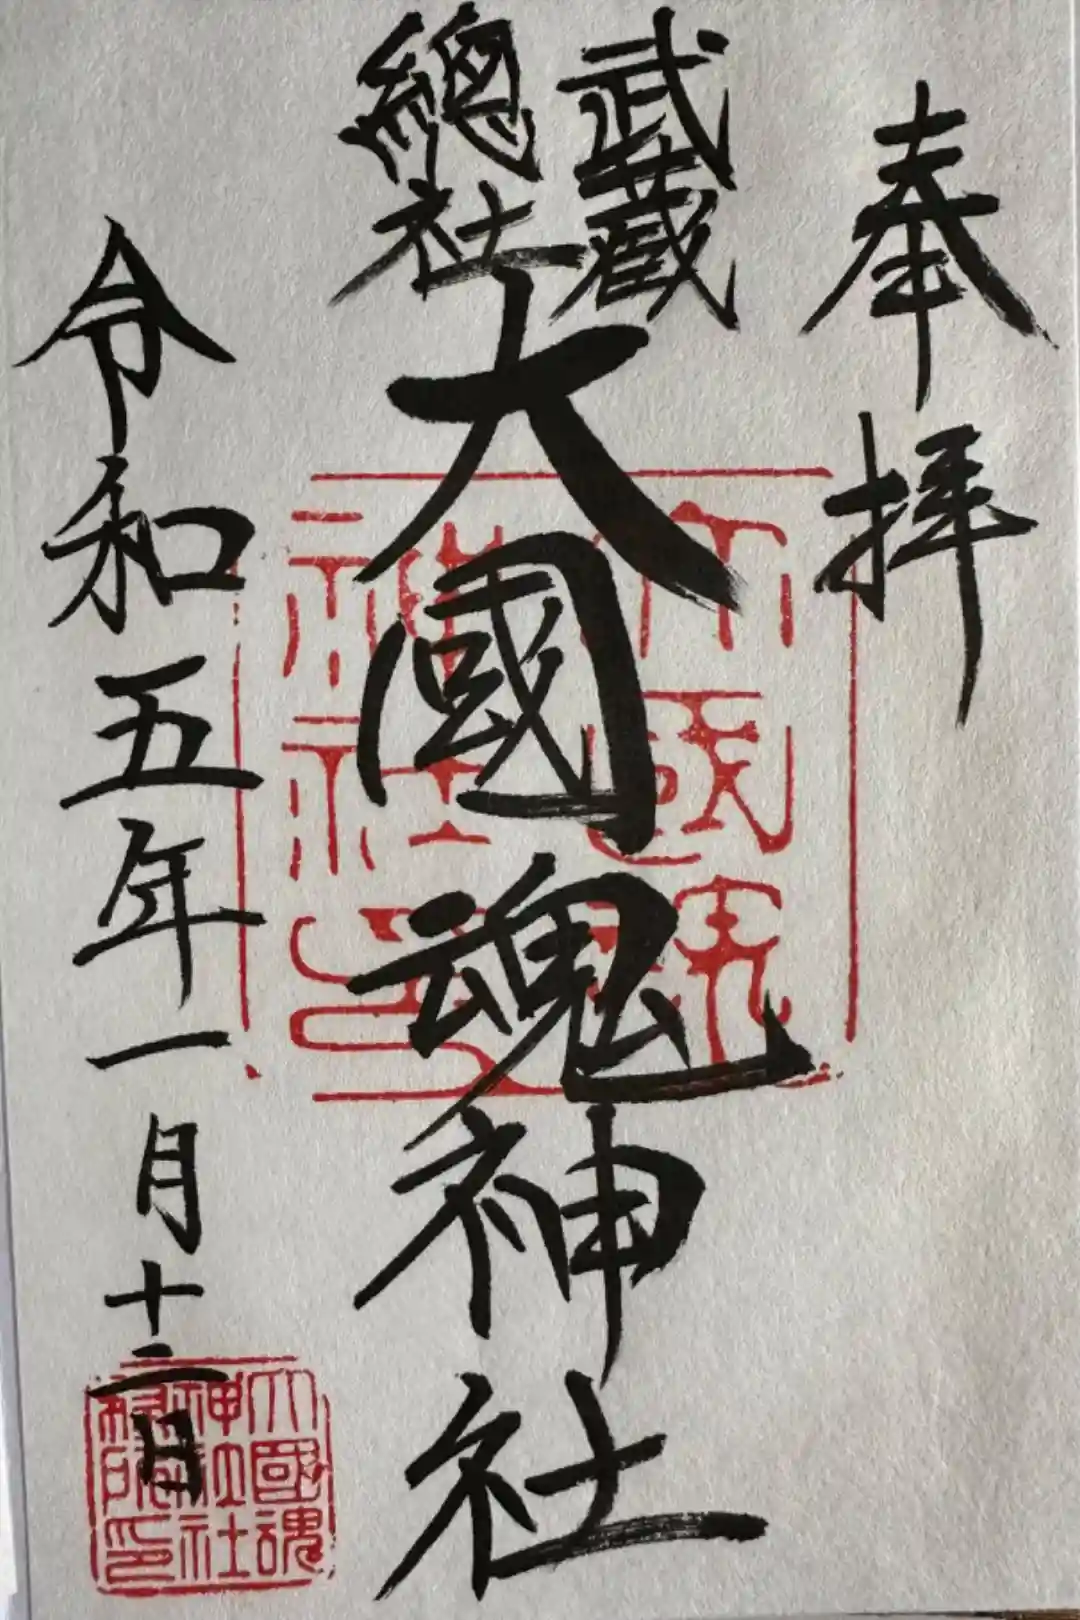 奉拝
武蔵
總社
大國魂神社
令和五年一月十二日
大國魂
神社印
大國魂
神社